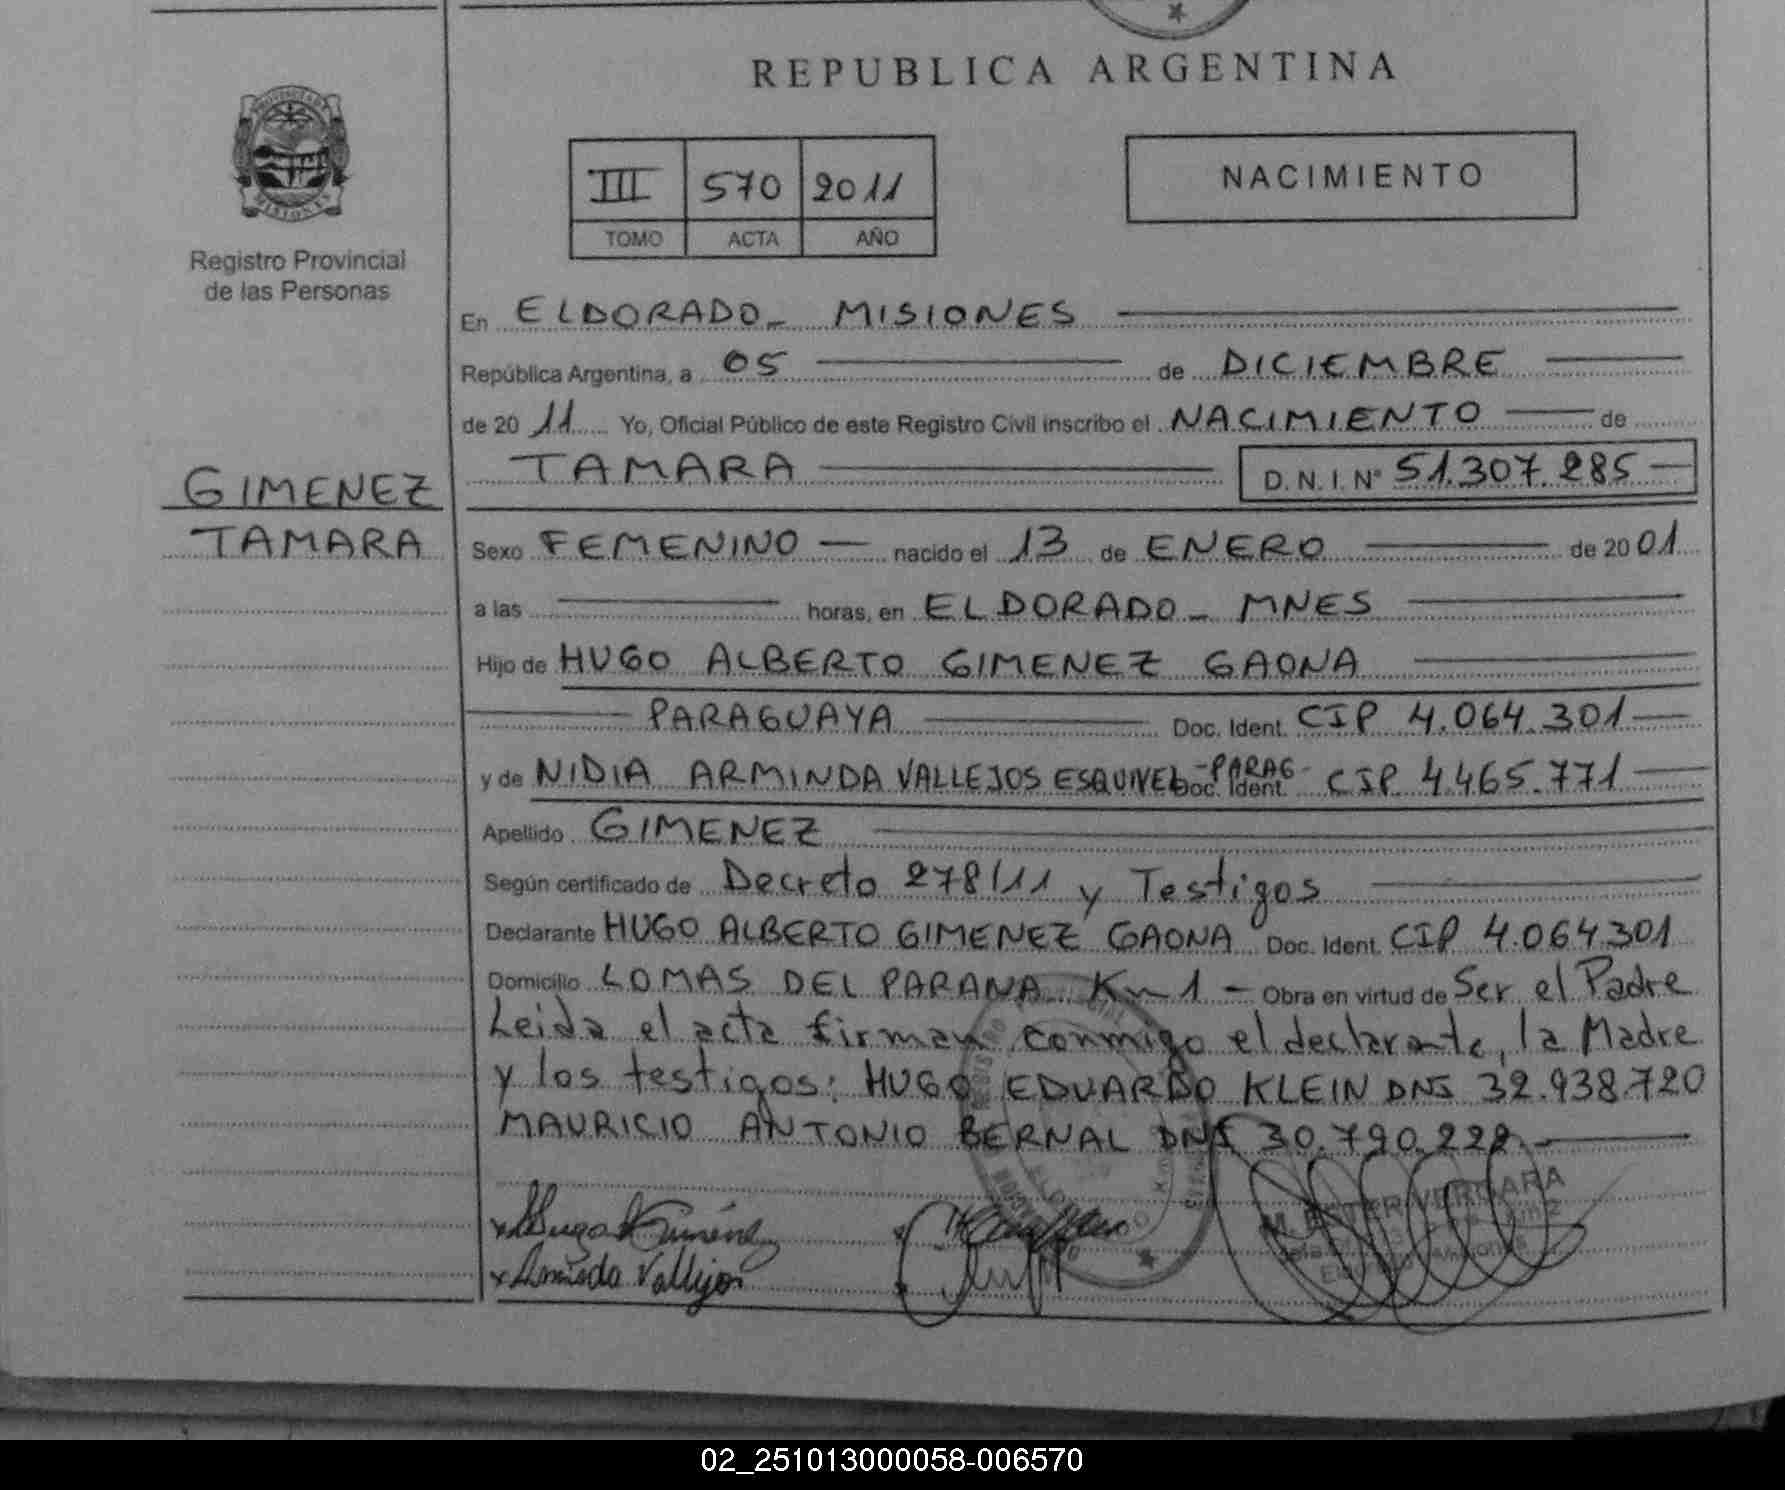 REPUBLICA ARGENTINA
PROVINCIA DE
MISIONES
Registro Provincial
de las Personas
III 570 2011
TOMO ACTA AÑO
NACIMIENTO
En ELDORADO - MISIONES
República Argentina, a 05 de DICIEMBRE
de 20 11 Yo, Oficial Público de este Registro Civil inscribo el NACIMIENTO de
GIMENEZ
TAMARA
TAMARA D.N.I. N° 51.307.285
Sexo FEMENINO nacido el 13 de ENERO de 20 01
a las horas, en ELDORADO - MNES
Hijo de HUGO ALBERTO GIMENEZ GAONA
PARAGUAYA Doc. Ident. CIP 4.064.301
y de NIDIA ARMINDA VALLEJOS ESQUIVEL -PARAG- Doc. Ident. CIP 4.465.771
Apellido GIMENEZ
Según certificado de Decreto 278/11 y Testigos
Declarante HUGO ALBERTO GIMENEZ GAONA Doc. Ident. CIP 4.064.301
Domicilio LOMAS DEL PARANA Km 1 - Obra en virtud de Ser el Padre
Leida el acta firman conmigo el declarante, la Madre
y los testigos: HUGO EDUARDO KLEIN DNI 32.938.720
MAURICIO ANTONIO BERNAL DNI 30.790.222
M. ESTER VERGARA
x Hugo A Giménez
x Arminda Vallejos
02_251013000058-006570